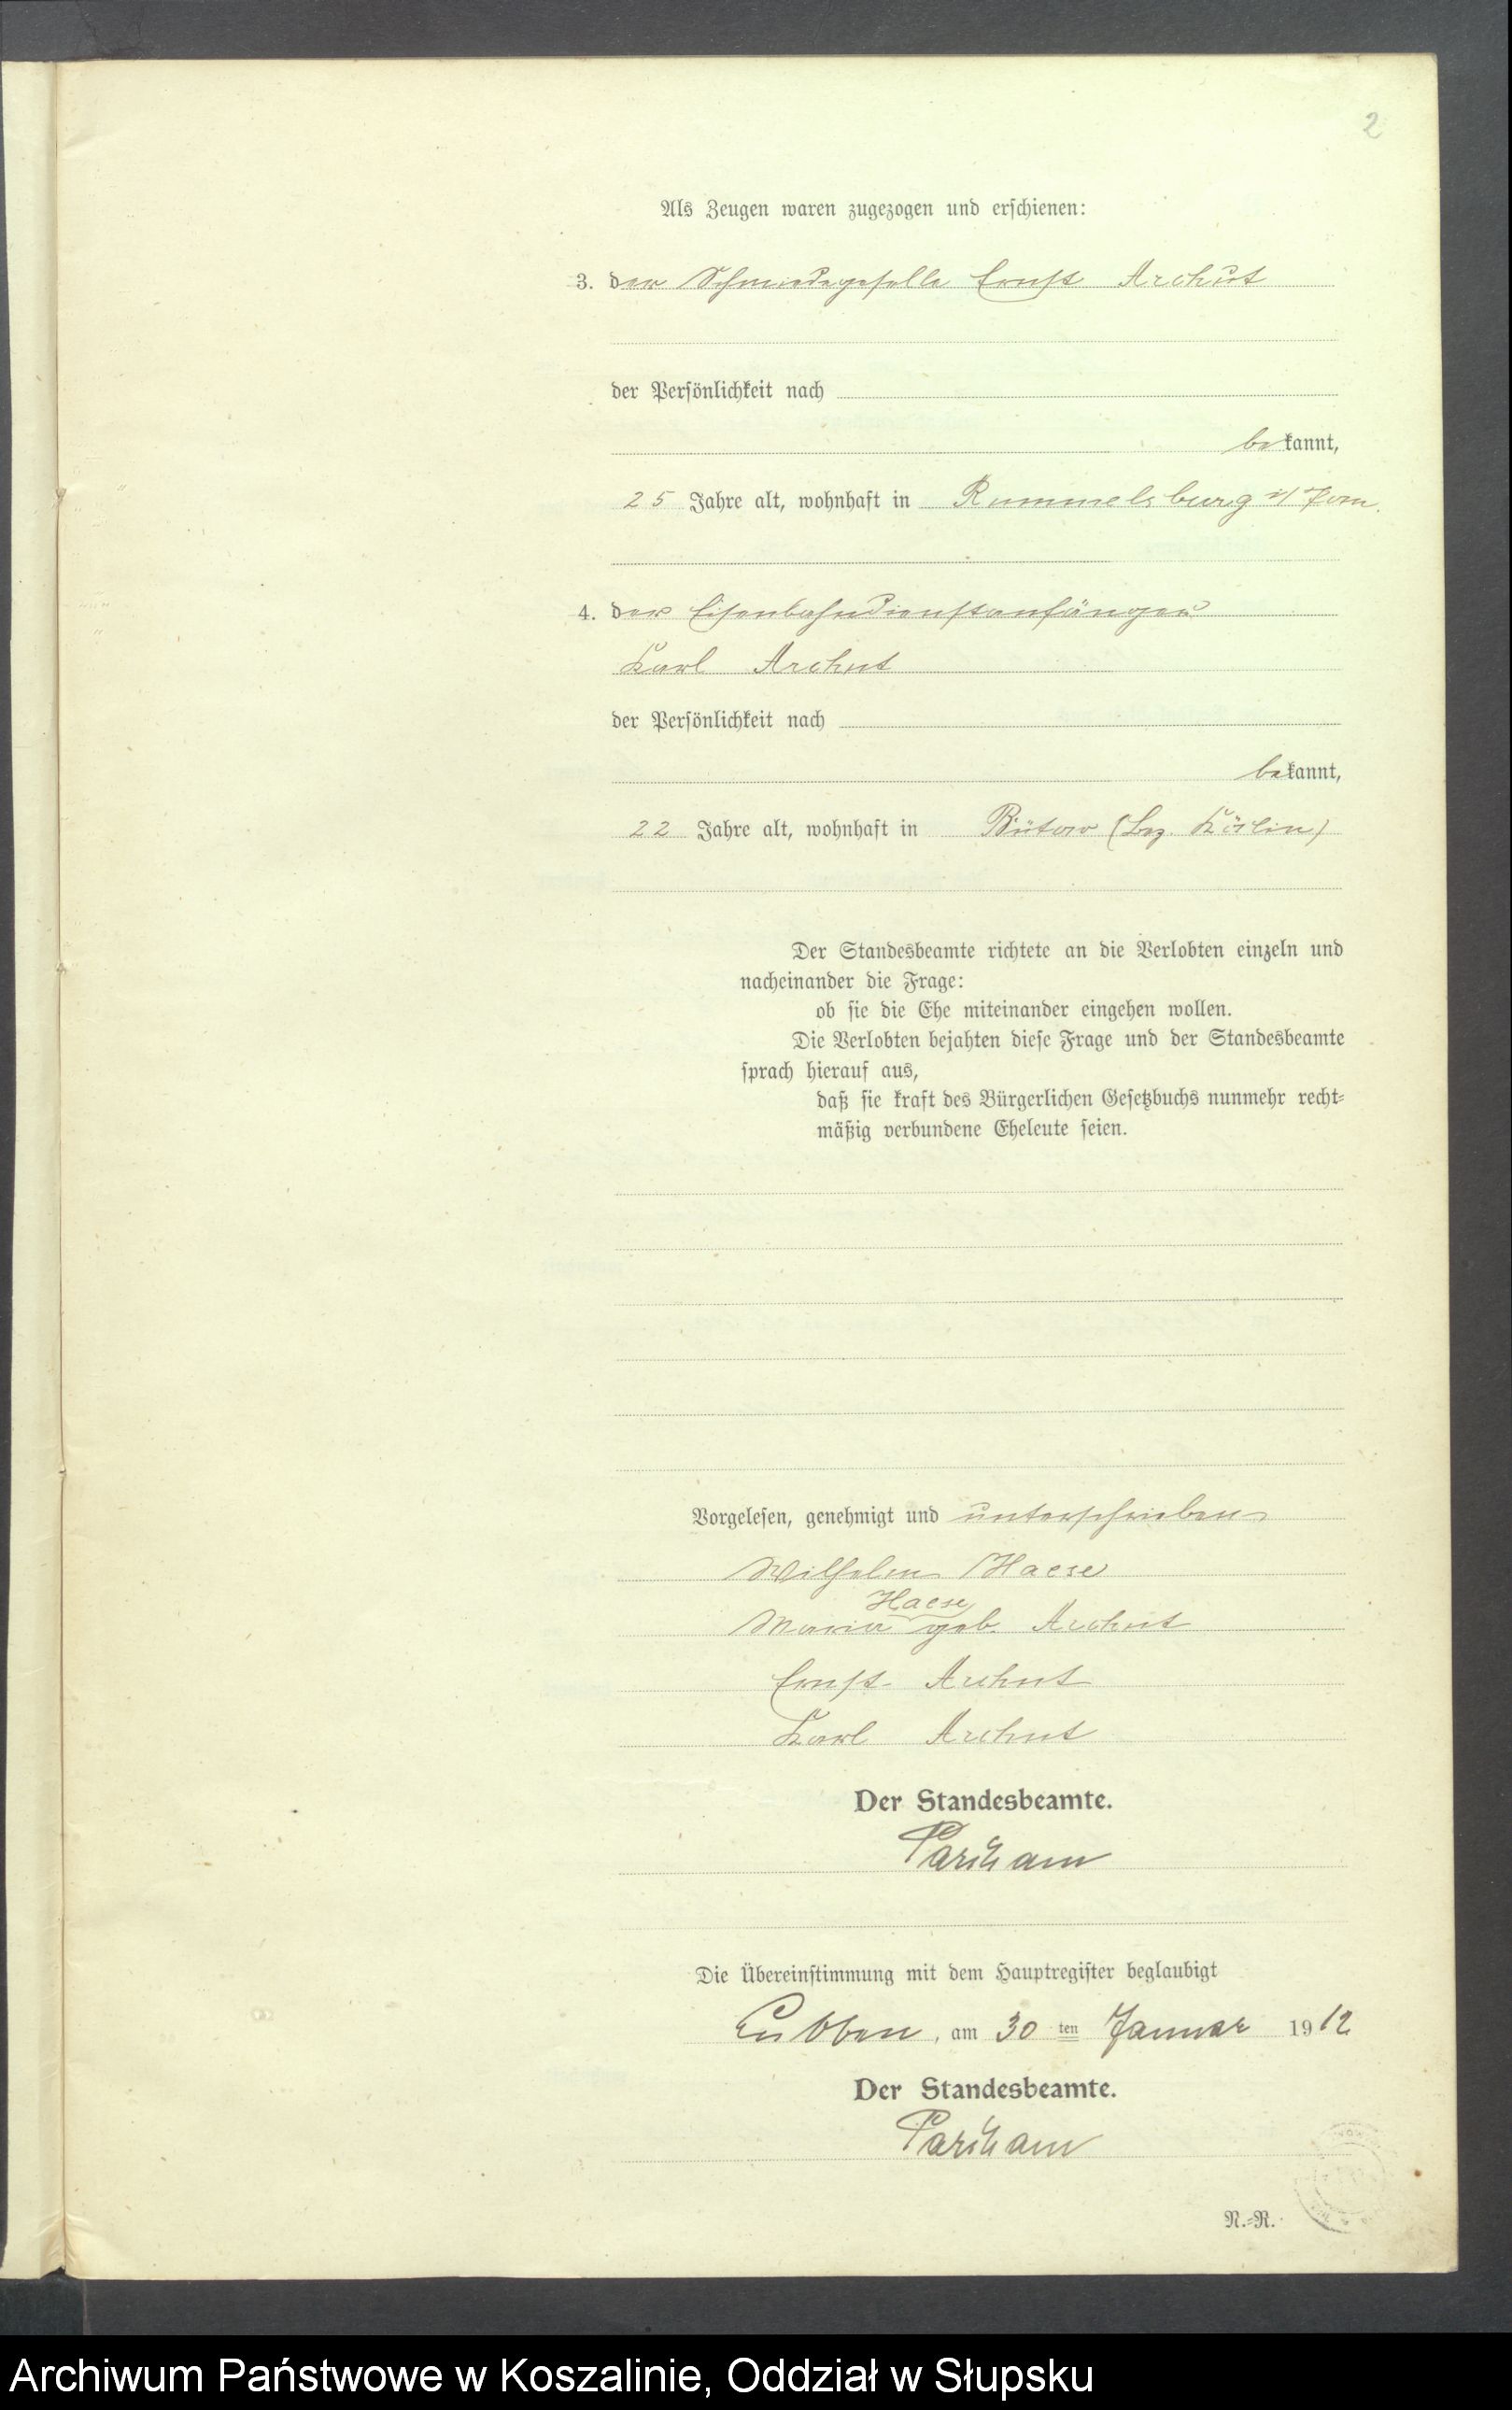 2
Als Zeugen waren zugezogen und erschienen:
3. der Schmiedegeselle Ernst Archut
der Persönlichkeit nach
bekannt,
25 Jahre alt, wohnhaft in Rummelsburg i/ Pom.
4. der Eisenbahndienstanfänger
Karl Archut
der Persönlichkeit nach
bekannt,
22 Jahre alt, wohnhaft in Bütow (Bez. Köslin)
Der Standesbeamte richtete an die Verlobten einzeln und
nacheinander die Frage:
ob sie die Ehe miteinander eingehen wollen.
Die Verlobten bejahten diese Frage und der Standesbeamte
sprach hierauf aus,
daß sie kraft des Bürgerlichen Gesetzbuchs nunmehr recht-
mäßig verbundene Eheleute seien.
Vorgelesen, genehmigt und unterschrieben
Wilhelm Haese
Haese
Maria geb. Archut
Ernst Archut
Karl Archut
Der Standesbeamte.
Die Übereinstimmung mit dem Hauptregister beglaubigt
Lubben, am 30 ten Januar 1912
Der Standesbeamte.
N.-R.
Archiwum Państwowe w Koszalinie, Oddział w Słupsku